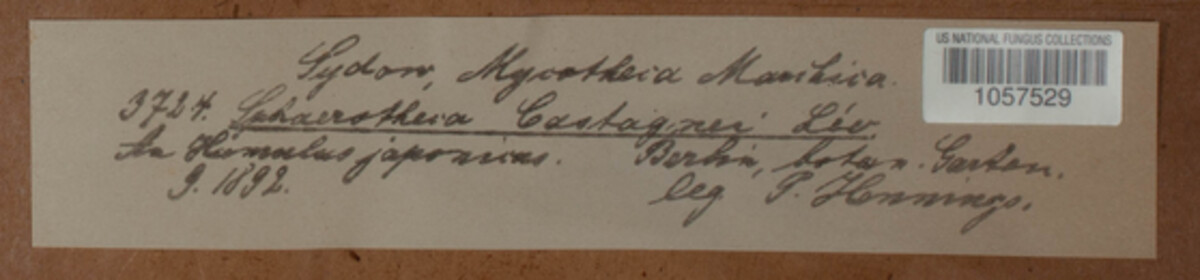 Sydow, Mycotheca Marchica.
3724. Sphaerotheca Castagnei Lév.
An Humulus japonicus. Berlin, botan. Garten.
9. 1892. leg. P. Hennings.
US NATIONAL FUNGUS COLLECTIONS
1057529